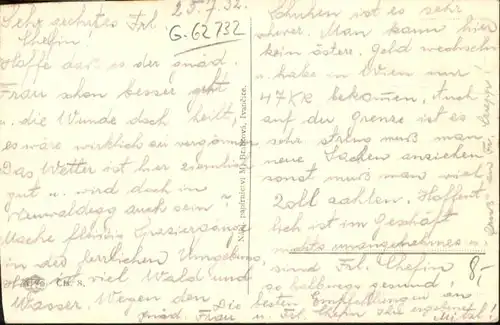 25.7.32.
Sehr geehrtes Frl.
Chefin!
G-62732
Hoffe daß es der gnäd.
Frau schon besser geht
u. die Wunde doch heilt,
es wäre wirklich zu vergönnen
Das Wetter ist hier ziemlich
gut u. wird doch in
auch sein?
Mache fleißig Spaziergänge
in der herrlichen Umgebung
hier ist viel Wald und
Wasser. Wegen den
Schuhen ist es sehr
schwer. Man kann hier
kein österr. Geld wechseln
u. habe in Wien nur
47 Kč bekommen. Auch
auf der Grenze ist es
sehr streng muß man
neue Sachen anziehen
sonst muß man viel
Zoll zahlen. Hoffent
lich ist im Geschäft
nichts unangenehmes u.
sind Frl. Chefin
so halbwegs gesund!
Die besten Empfehlungen an
gnäd. Frau u. Frl. Chefin Ihre ergebene
Mitzi.
8,-
Nákl. papírnictví M. Ivančice.